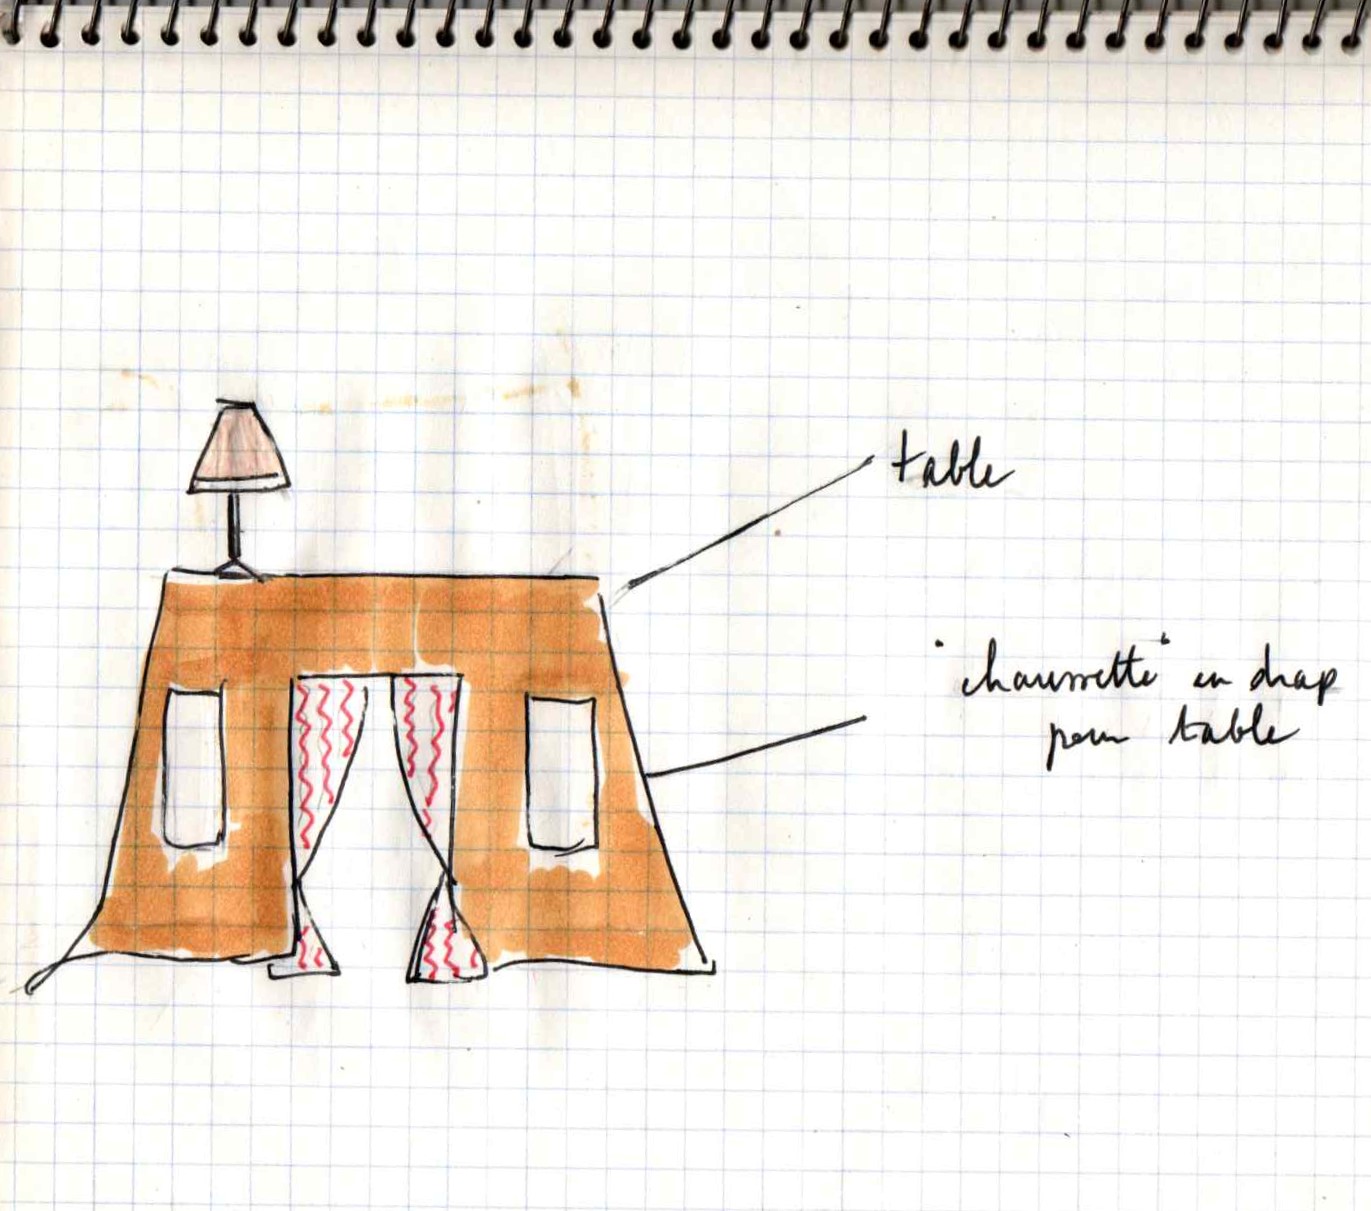 table
"chaussette" en drap
pour table